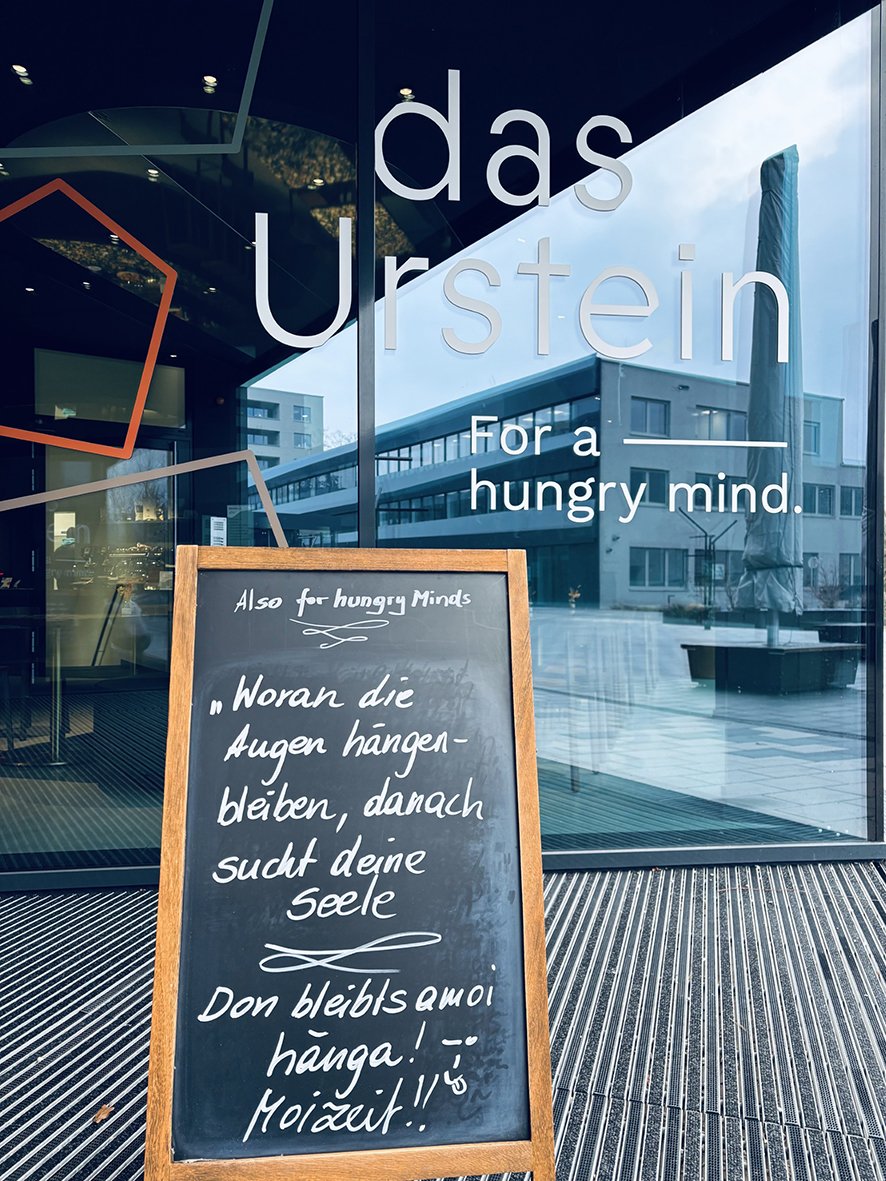 das
Urstein
For a
hungry mind.
Also for hungry Minds
„Woran die
Augen hängen-
bleiben, danach
sucht deine
Seele
Don bleibts amoi
hänga!
Moizeit!!